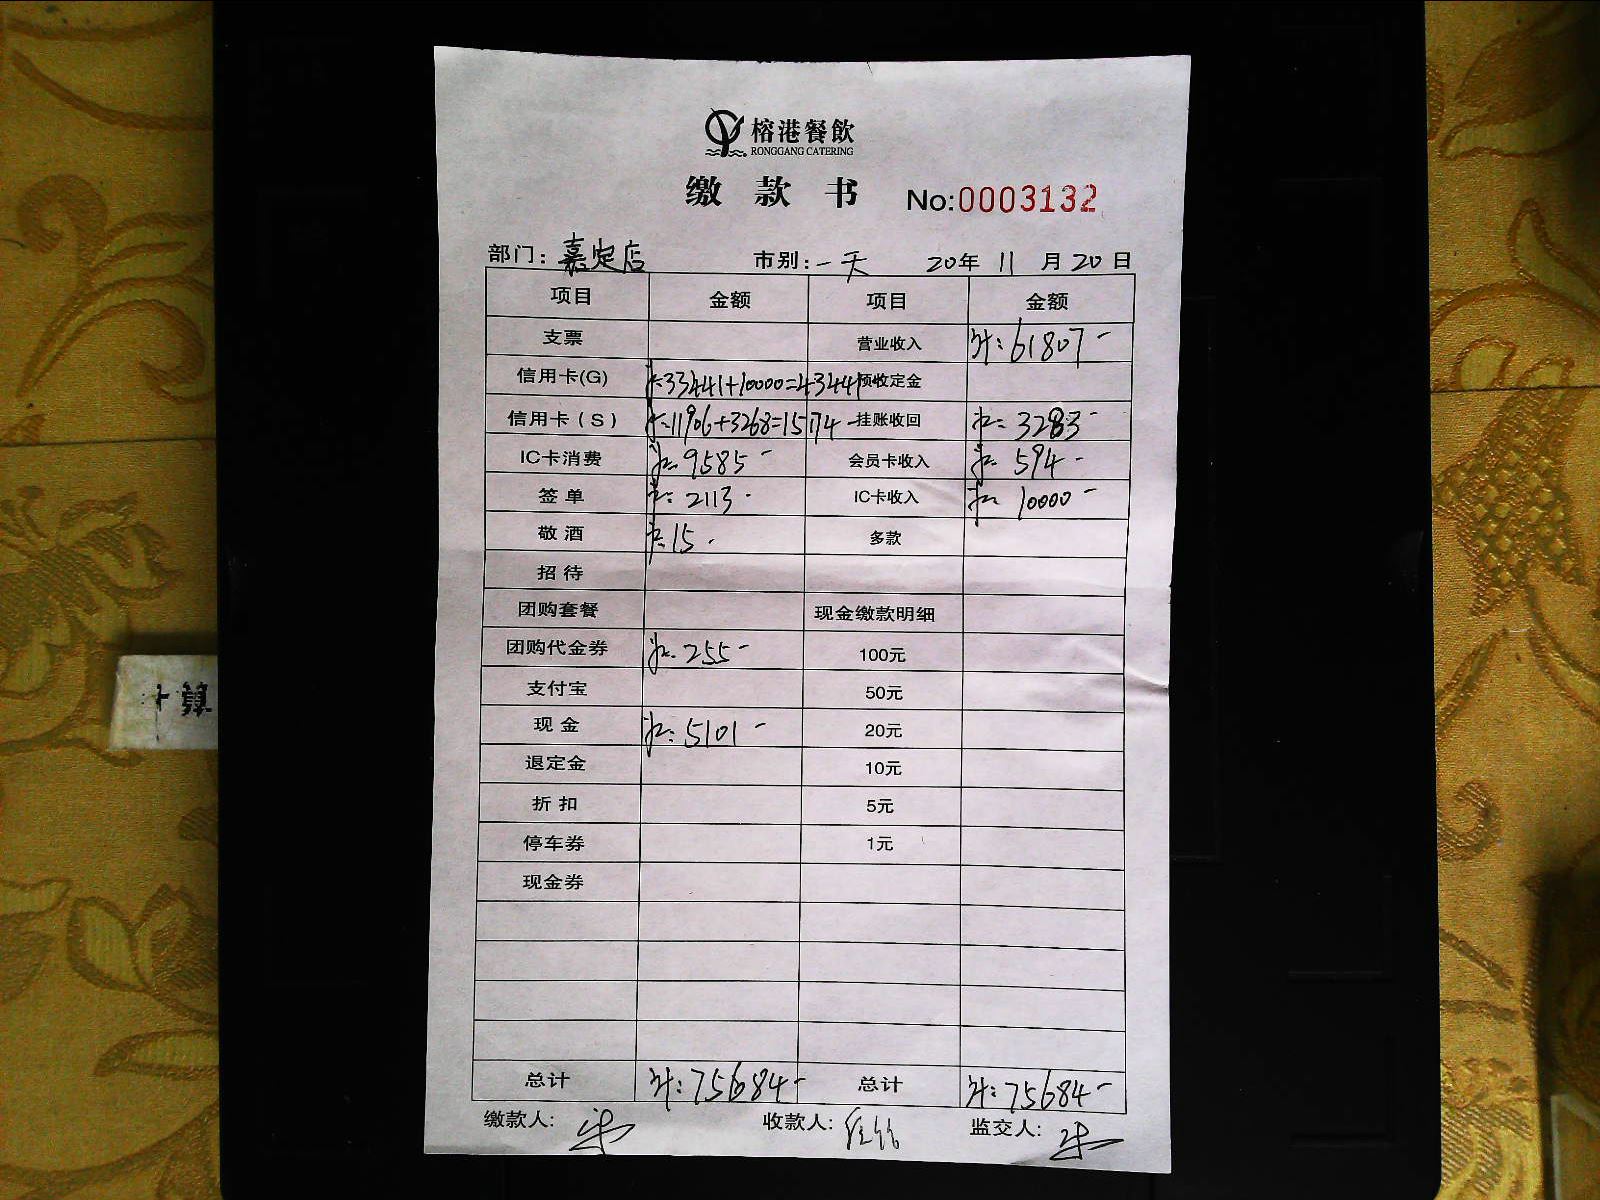 榕港餐飲
RONGGANG CATERING
缴款书 No:0003132
部门：嘉定店 市别：一天 20年 11月20日
项目 金额 项目 金额
支票 营业收入 计：61807-
信用卡(G) 33441+10000=43441- 预收定金
信用卡（S） 11906+3268=15174- 挂账收回 3283-
IC卡消费 9585- 会员卡收入 594-
签单 2113- IC卡收入 10000-
敬酒 15- 多款
招待
团购套餐 现金缴款明细
团购代金券 255- 100元
支付宝 50元
现金 5101- 20元
退定金 10元
折扣 5元
停车券 1元
现金券
总计 计：75684- 总计 计：75684-
缴款人: 收款人: 监交人: